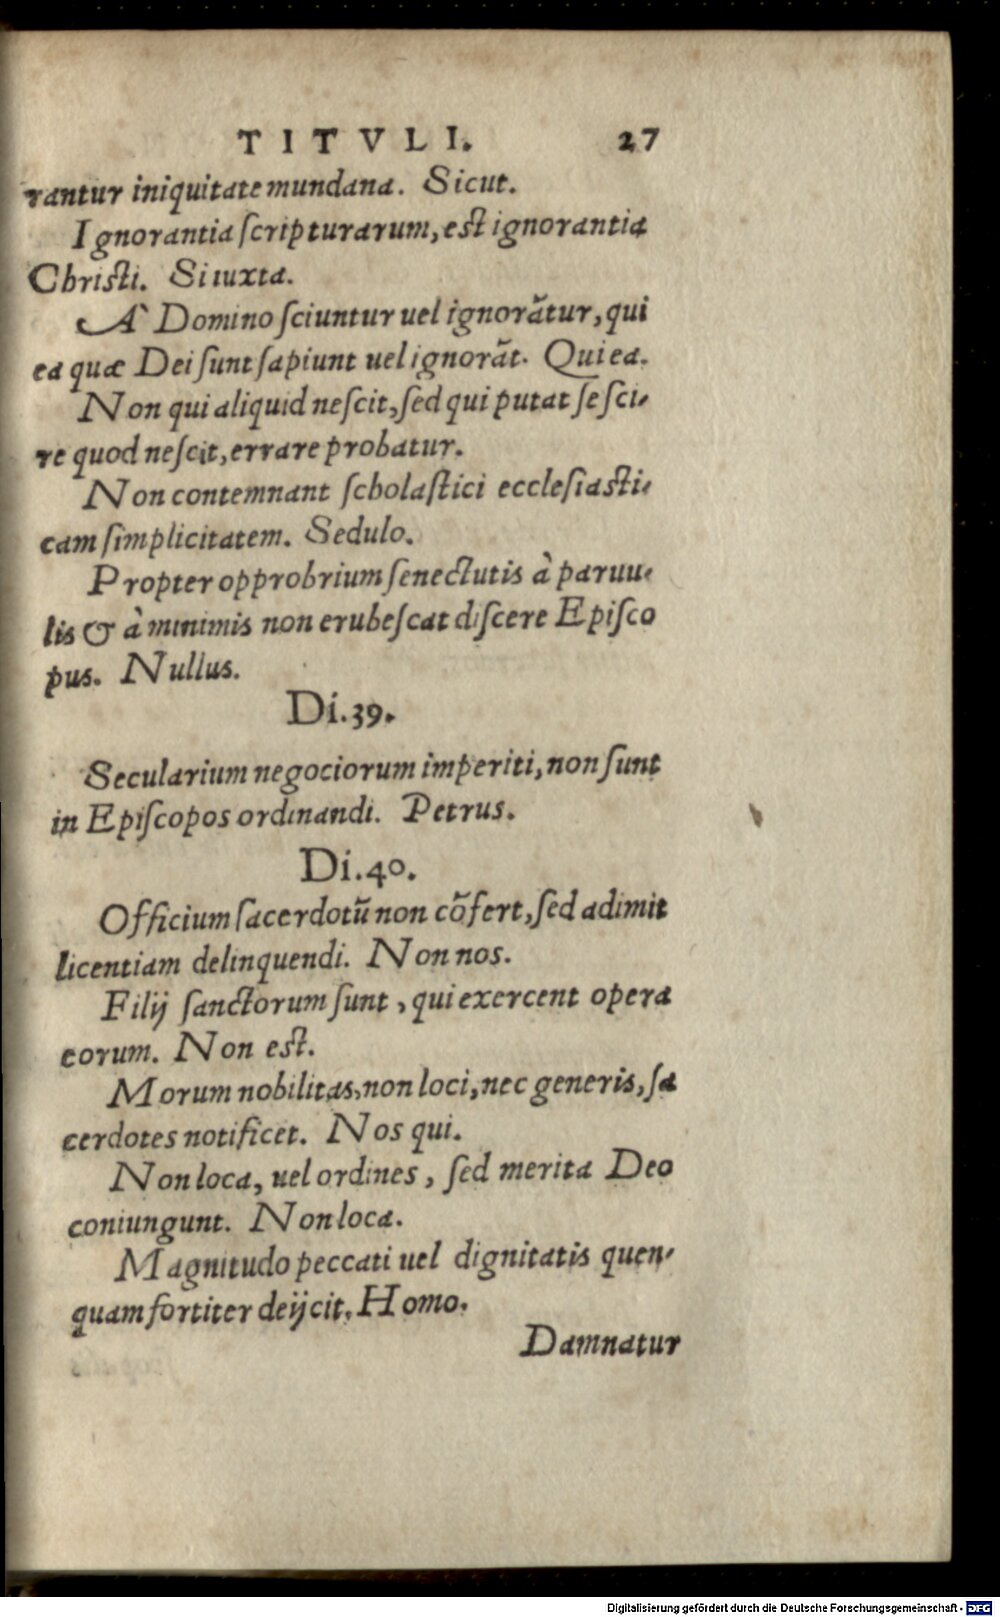 TITVLI. 27
rantur iniquitate mundana. Sicut.
Ignorantia ſcripturarum, est ignorantia
Christi. Si iuxta.
A Domino ſciuntur uel ignorãtur, qui
ea quæ Dei ſunt ſapiunt uel ignorãt. Qui ea.
Non qui aliquid neſcit, ſed qui putat ſe ſci-
re quod neſcit, errare probatur.
Non contemnant ſcholaſtici eccleſiasti-
cam ſimplicitatem. Sedulo.
Propter opprobrium ſenectutis à paruu-
lis & à minimis non erubeſcat diſcere Epiſco
pus. Nullus.
Di.39.
Secularium negociorum imperiti, non ſunt
in Epiſcopos ordinandi. Petrus.
Di.40.
Officium ſacerdotũ non cõfert, ſed adimit
licentiam delinquendi. Non nos.
Filij ſanctorum ſunt, qui exercent opera
eorum. Non est.
Morum nobilitas, non loci, nec generis, ſa
cerdotes notificet. Nos qui.
Non loca, uel ordines, ſed merita Deo
coniungunt. Non loca.
Magnitudo peccati uel dignitatis quen-
quam fortiter deijcit. Homo.
Damnatur
Digitalisierung gefördert durch die Deutsche Forschungsgemeinschaft - DFG